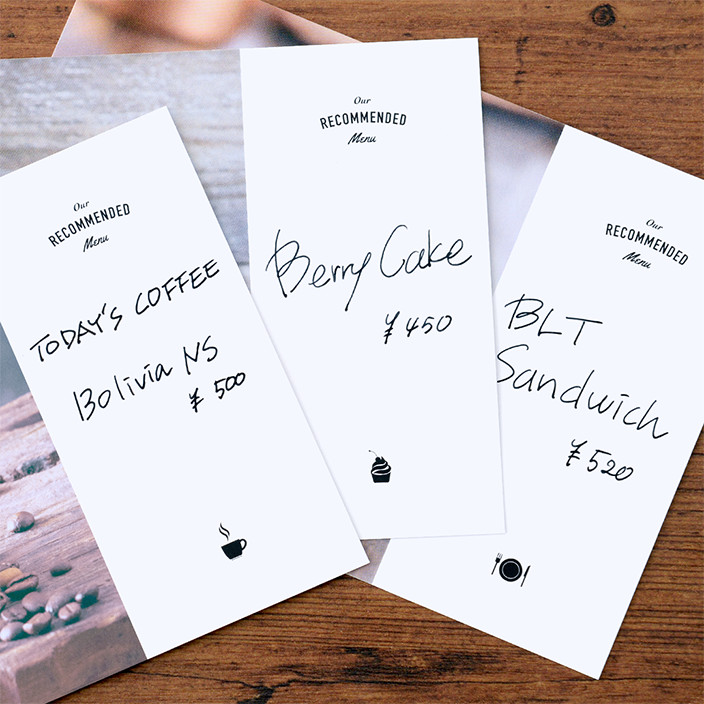 Our
RECOMMENDED
Menu
TODAY'S COFFEE
Bolivia NS
¥ 500
Our
RECOMMENDED
Menu
Berry Cake
¥ 450
Our
RECOMMENDED
Menu
BLT
Sandwich
¥ 520